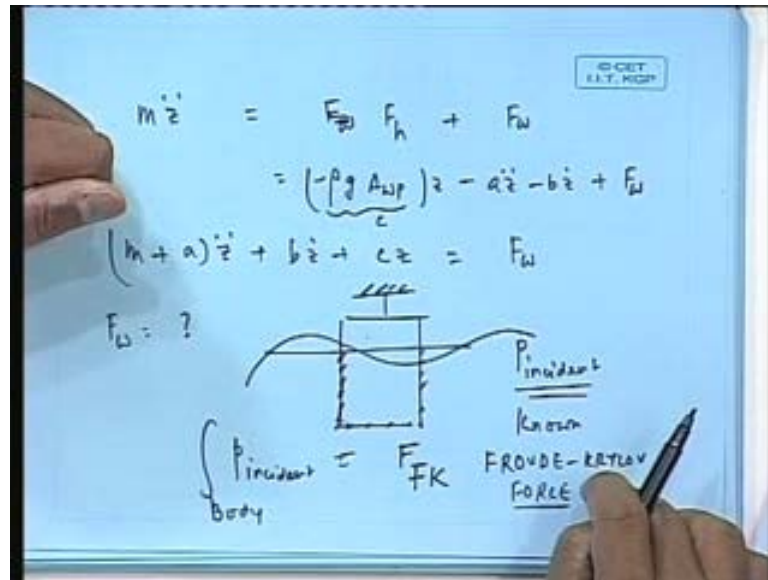 © CET
I.I.T. KGP
mz̈ = F_h + F_w
= (-ρg A_wp)z - az̈ - bż + F_w
c
(m + a)z̈ + bż + cz = F_w
F_w = ?
P_incident
Known
∫_Body P_incident = F_FK FROUDE-KRYLOV
FORCE